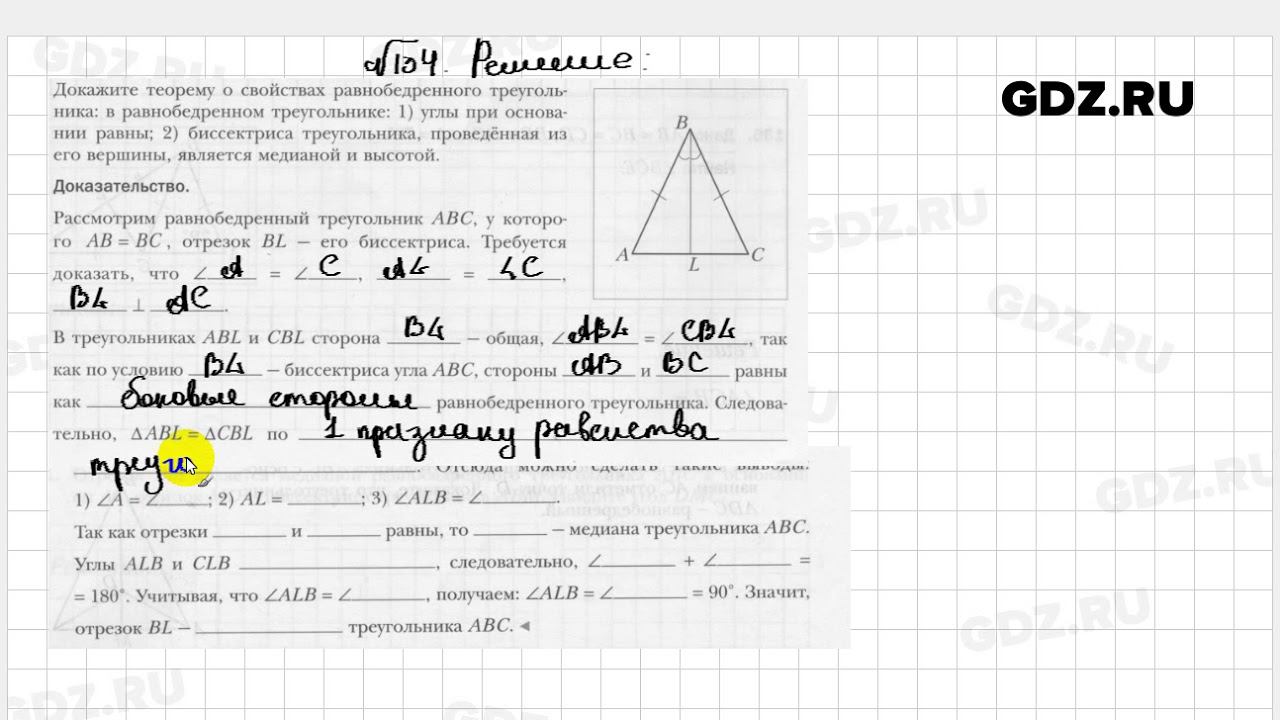 №134. Решение:
GDZ.RU
Докажите теорему о свойствах равнобедренного треуголь-
ника: в равнобедренном треугольнике: 1) углы при основа-
нии равны; 2) биссектриса треугольника, проведённая из
его вершины, является медианой и высотой.
Доказательство.
Рассмотрим равнобедренный треугольник ABC, у которо-
го AB = BC , отрезок BL – его биссектриса. Требуется
доказать, что ∠ A = ∠ C , AL = LC ,
BL ⊥ AC .
B
A
L
C
В треугольниках ABL и CBL сторона BL – общая, ∠ ABL = ∠ CBL , так
как по условию BL – биссектриса угла ABC, стороны AB и BC равны
как боковые стороны равнобедренного треугольника. Следова-
тельно, ΔABL = ΔCBL по 1 признаку равенства
треуг . Отсюда можно сделать такие выводы:
1) ∠A = ∠ ; 2) AL = ; 3) ∠ALB = ∠ .
Так как отрезки и равны, то – медиана треугольника ABC.
Углы ALB и CLB , следовательно, ∠ + ∠ =
= 180°. Учитывая, что ∠ALB = ∠ , получаем: ∠ALB = ∠ = 90°. Значит,
отрезок BL – треугольника ABC. ◄
GDZ.RU
GDZ.RU
GDZ.RU
GDZ.RU
GDZ.RU